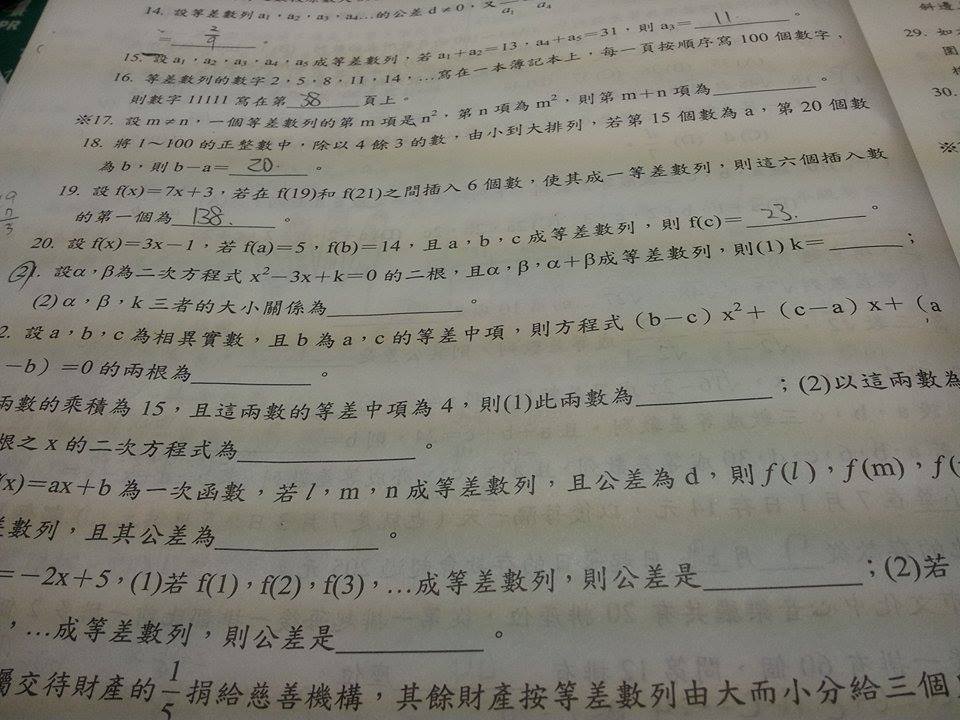 14. 設等差數列 a₁，a₂，a₃，a₄…的公差 d≠0，又
= 2/9 。
15. 設 a₁，a₂，a₃，a₄，a₅ 成等差數列，若 a₁+a₂=13，a₄+a₅=31，則 a₃= 11. 。
16. 等差數列的數字 2，5，8，11，14，…寫在一本簿記本上，每一頁按順序寫 100 個數字，
則數字 11111 寫在第 38 頁上。
※17. 設 m≠n，一個等差數列的第 m 項是 n²，第 n 項為 m²，則第 m+n 項為 。
18. 將 1～100 的正整數中，除以 4 餘 3 的數，由小到大排列，若第 15 個數為 a，第 20 個數
為 b，則 b－a= 20. 。
19. 設 f(x)=7x+3，若在 f(19)和 f(21)之間插入 6 個數，使其成一等差數列，則這六個插入數
的第一個為 138. 。
20. 設 f(x)=3x－1，若 f(a)=5，f(b)=14，且 a，b，c 成等差數列，則 f(c)= 23. 。
21. 設α，β為二次方程式 x²－3x+k=0 的二根，且α，β，α+β成等差數列，則(1) k= ；
(2) α，β，k 三者的大小關係為 。
2. 設 a，b，c 為相異實數，且 b 為 a，c 的等差中項，則方程式（b－c）x²+（c－a）x+（a
－b）=0 的兩根為 。
兩數的乘積為 15，且這兩數的等差中項為 4，則(1)此兩數為 ；(2)以這兩數為
根之 x 的二次方程式為 。
(x)=ax+b 為一次函數，若 l，m，n 成等差數列，且公差為 d，則 f(l)，f(m)，f(
數列，且其公差為 。
=－2x+5，(1)若 f(1)，f(2)，f(3)，…成等差數列，則公差是 ；(2)若
，…成等差數列，則公差是 。
囑交待財產的 1/5 捐給慈善機構，其餘財產按等差數列由大而小分給三個
斜邊
29. 如
圖
30.
※